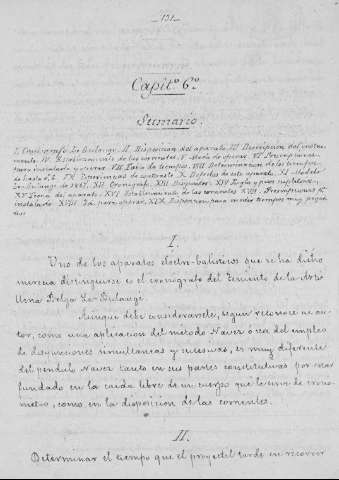 —131—
Capit.º 6.º
Sumario.
I. Cronógrafo Le Boulangé. II Disposicion del aparato. III Descripcion del instru-
mento. IV Establecimiento de las corrientes. V Modo de operar. VI Precauciones
para instalarlo y operar. VII Tabla de tiempos. VIII Determinacion de los tiempos
IX Experiencias de contraste. X Defectos de este aparato. XI Modelo
Le Boulangé de 1867. XII Cronógrafo. XIII Disyuntor. XIV Regla y pieza suplement.
XV Teoria del aparato. XVI Establecimiento de las corrientes. XVII Precauciones p.ª
instalarlo. XVIII Id. para operar. XIX Disposicion para medir tiempos muy peque-
ños
I.
Uno de los aparatos electro-balisticos que se ha dicho
merecia distinguirse es el cronógrafo del Teniente de la Arti-
lleria Belga Le-Boulangé.
Aunque debe considerarsele, segun reconoce su au-
tor, como una aplicacion del método Navez ó sea del empleo
de disyunciones simultaneas y sucesivas, es muy diferente
del péndulo Navez tanto en sus partes constitutivas por estar
fundado en la caida libre de un cuerpo que le sirve de cronó-
metro, como en la disposicion de las corrientes.
II.
Determinar el tiempo que el proyectil tarda en recorrer